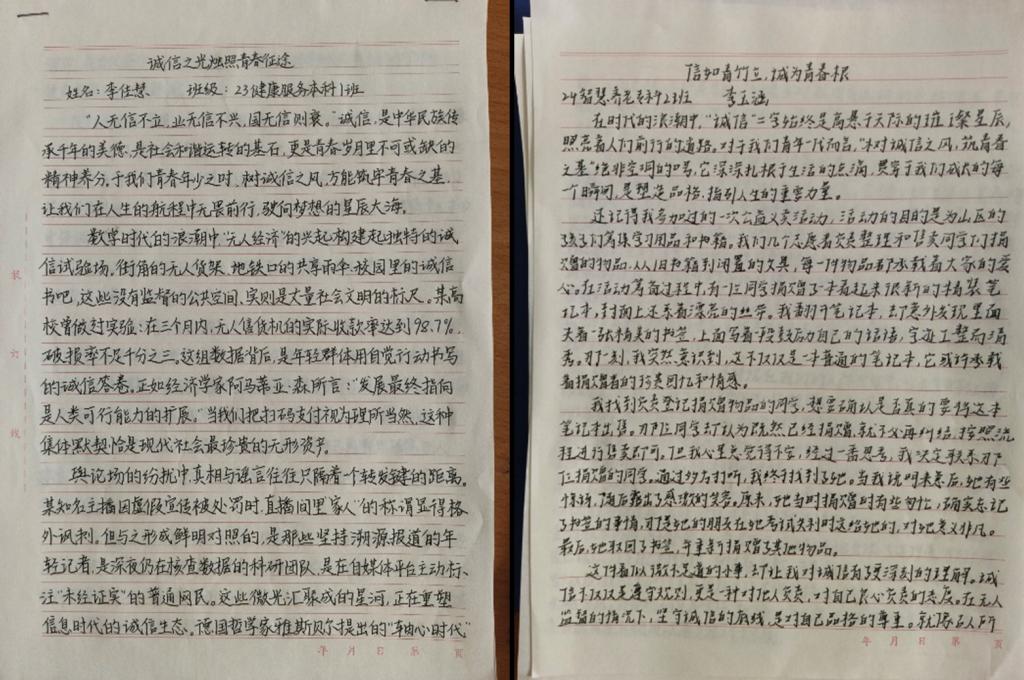 诚信之光烛照青春征途
姓名：李佳慧 班级：23健康服务本科1班
“人无信不立，业无信不兴，国无信则衰。”诚信，是中华民族传
承千年的美德，是社会和谐运转的基石，更是青春岁月里不可或缺的
精神养分。于我们青春年少之时，树诚信之风，方能筑牢青春之基，
让我们在人生的航程中无畏前行，驶向梦想的星辰大海。
数字时代的浪潮中，“无人经济”的兴起构建起独特的诚
信试验场，街角的无人货架、地铁口的共享雨伞、校园里的诚信
书吧，这些没有监督的公共空间，实则是丈量社会文明的标尺。某高
校曾做过实验：在三个月内，无人售货机的实际收款率达到98.7%，
破损率不足千分之三。这组数据背后，是年轻群体用自觉行动书写
的诚信答卷。正如经济学家阿马蒂亚·森所言：“发展最终指向
是人类可行能力的扩展。”当我们把扫码支付视为理所当然，这种
集体默契恰是现代社会最珍贵的无形资产。
舆论场的纷扰中，真相与谣言往往只隔着一个转发键的距离。
某知名主播因虚假宣传被处罚时，直播间里“家人”的称谓显得格
外讽刺。但与之形成鲜明对照的，是那些坚持溯源报道的年
轻记者，是深夜仍在核查数据的科研团队，是在自媒体平台主动标
注“未经证实”的普通网民。这些微光汇聚成的星河，正在重塑
信息时代的诚信生态。德国哲学家雅斯贝尔提出的“轴心时代”
装
订
线
年 月 日 第 页
信如青竹立，诚为青春根
24智慧养老专科23班 李玉涵
在时代的浪潮中，“诚信”二字始终是高悬于天际的璀璨星辰，
照亮着人们前行的道路。对于我们青年一代而言，“树诚信之风，筑青春
之基”绝非空洞的口号，它深深扎根于生活的点滴，贯穿于我们成长的每
一个瞬间，是塑造品格、指引人生的重要力量。
还记得我参加过的一次公益义卖活动，活动的目的是为山区的
孩子们筹集学习用品和书籍。我们几个志愿者负责整理和售卖同学们捐
赠的物品，从旧书籍到闲置的文具，每一件物品都承载着大家的爱
心。在活动筹备过程中，有一位同学捐赠了一本看起来很新的精装笔
记本，封面上还系着漂亮的丝带。我翻开笔记本，却意外发现里面
夹着一张精美的书签，上面写着一段鼓励自己的话语，字迹工整而清
秀。那一刻，我突然意识到，这不仅仅是一本普通的笔记本，它或许承载
着捐赠者的珍贵回忆和情感。
我找到负责登记捐赠物品的同学，想要确认是否真的要将这本
笔记本出售。那位同学却认为既然已经捐赠，就不必再纠结，按照流
程进行售卖即可。但我心里总觉得不安，经过一番思考，我决定联系那
位捐赠的同学。通过多方打听，我终于找到了她。当我说明来意后，她有些
惊讶，随后露出了感激的笑容。原来，她当时捐赠时有些匆忙，确实忘记
了书签的事情，那是她的朋友在她考试失利时送给她的，对她意义非凡。
最后，她取回了书签，并重新捐赠了其他物品。
这件看似微不足道的小事，却让我对诚信有了更深刻的理解。诚
信不仅仅是遵守规则，更是一种对他人负责，对自己良心负责的态度。在无人
监督的情况下，坚守诚信的底线，是对自己品格的尊重。就像古人所
年 月 日 第 页